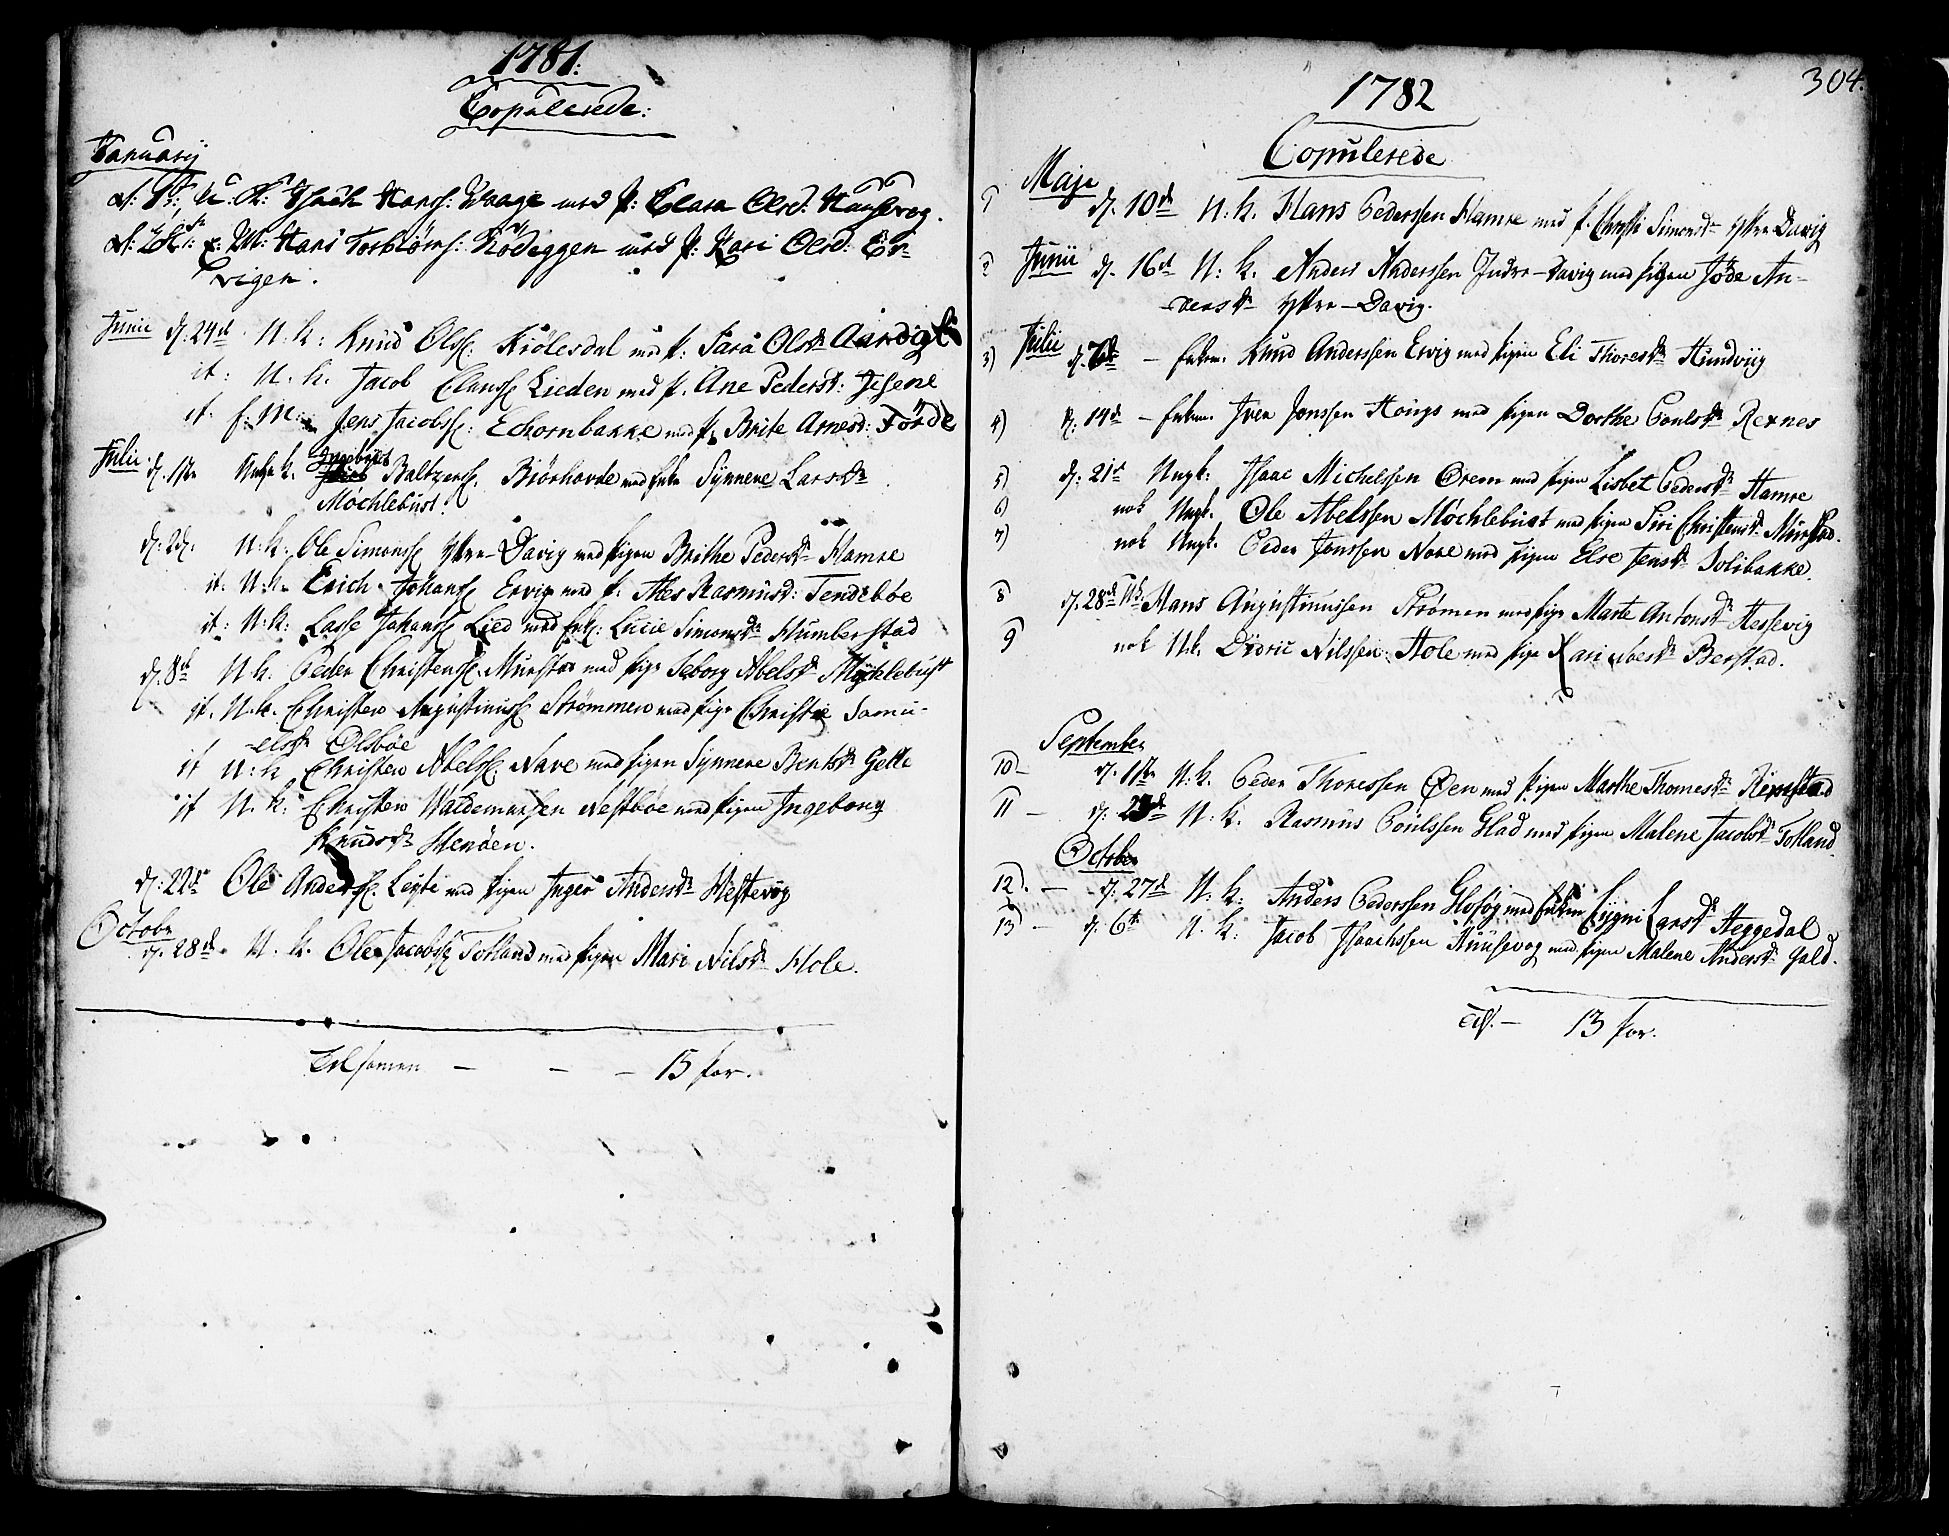 1781:
Copulerede:
January
d: 1ste: U: K: Isach Hanss: Waage med p: Clara Olsd: Hausevog.
Hans Torbiörns: Rödeggen med p: Kari Olsd: Er-
vigen.
Junii d: 24de U: k: Knud Olss: Kiölesdal med p: Sara Olsdr
it: U. k. Jacob Clauss: Lieden med p. Ane Pedersd: Jesene
it. f: m: Jens Jacobss: Echornbakke med p. Brite Arnesd: Förde
Julii d. 1ste Unge k. Ingebrict Baltzerss. Biörhovde med Enke Synneve Larsdr
Möchlebust.
d: 2d. U: k: Ole Simonss Yttre-Davig med Pigen Brithe Pedersdr Hamre
it: U. k. Erich Johanss Ervig med p. Ales Rasmusd: Tendebøe
it: U: k: Lasse Johanss Lied med Enk: Lucie Simonsdr Humberstad
d: 8de U k: Peder Christenss. Murstad med Pige Seborg Abelsdr Mychlebust
it. U. k. Christen Augustinuss Strømmen med Pige Christie Samu-
elsdr Olsbøe
it U: k Christen Abelss. Nave med Pigen Synneve Bentsdr Gelle
it U. k: Christen Waldemarsen Nestbøe med Pigen Ingeborg
Knudsdr Stenöen.
d: 22de Ole Anderss. Leyte med Pigen Inger Andersdr Hestevog
Octobr d: 28de U. k. Ole Jacobss Totland med Pigen Mari Nilsdr Hole.
Tilsamen — — — 15 par.
304.
1782
Copulerede
Maje
1 d. 10de U: k. Hans Pederssen Hamre med p. Christi Simonsdr Yttre Davig
2 Junii d. 16de U: k. Anders Anderssen Indre-Davig med Pigen Jøde An-
dersdr Yttre-Davig.
3) Julii d. 7de — Enkem. Knud Anderssen Ervig med Pigen Eli Thoresdr Hundviig
4) d: 14de — Enkem. Iver Jonssen Honigs med Pigen Dorthe Poulsdr Rexnes
5) d: 21de Ungk: Isaac Michelssen Ørem med Pigen Lisbet Pedersdr Hamre
6) nok Ungk. Ole Abelssen Möchlebust med Pigen Siri Christensdr Murstad.
7) nok Ungk. Peder Jonssen Nore med Pigen Else Jensdr Solibakke.
8 d: 28de U: k: Hans Augustinussen Strømen med Pige Marte Antonsdr Hessevig
9 nok U. k. Didric Nilssen Hole med Pige Kari Berstad.
September
10 – d. 1ste U: k. Peder Thoressen Øen med Pigen Marthe Thomesdr Rimstad
11 – d: U. k. Rasmus Poulssen Glad med Pigen Malene Jacobsdr Totland.
October
12. — d: 27de U: k: Anders Pederssen Glosög med Enken Sygni Larsdr Heggedal
13 – d. 6te U. k: Jacob Isaachssen Huusevog med Pigen Malene Andersdr Gald.
Tils. — 13 par.